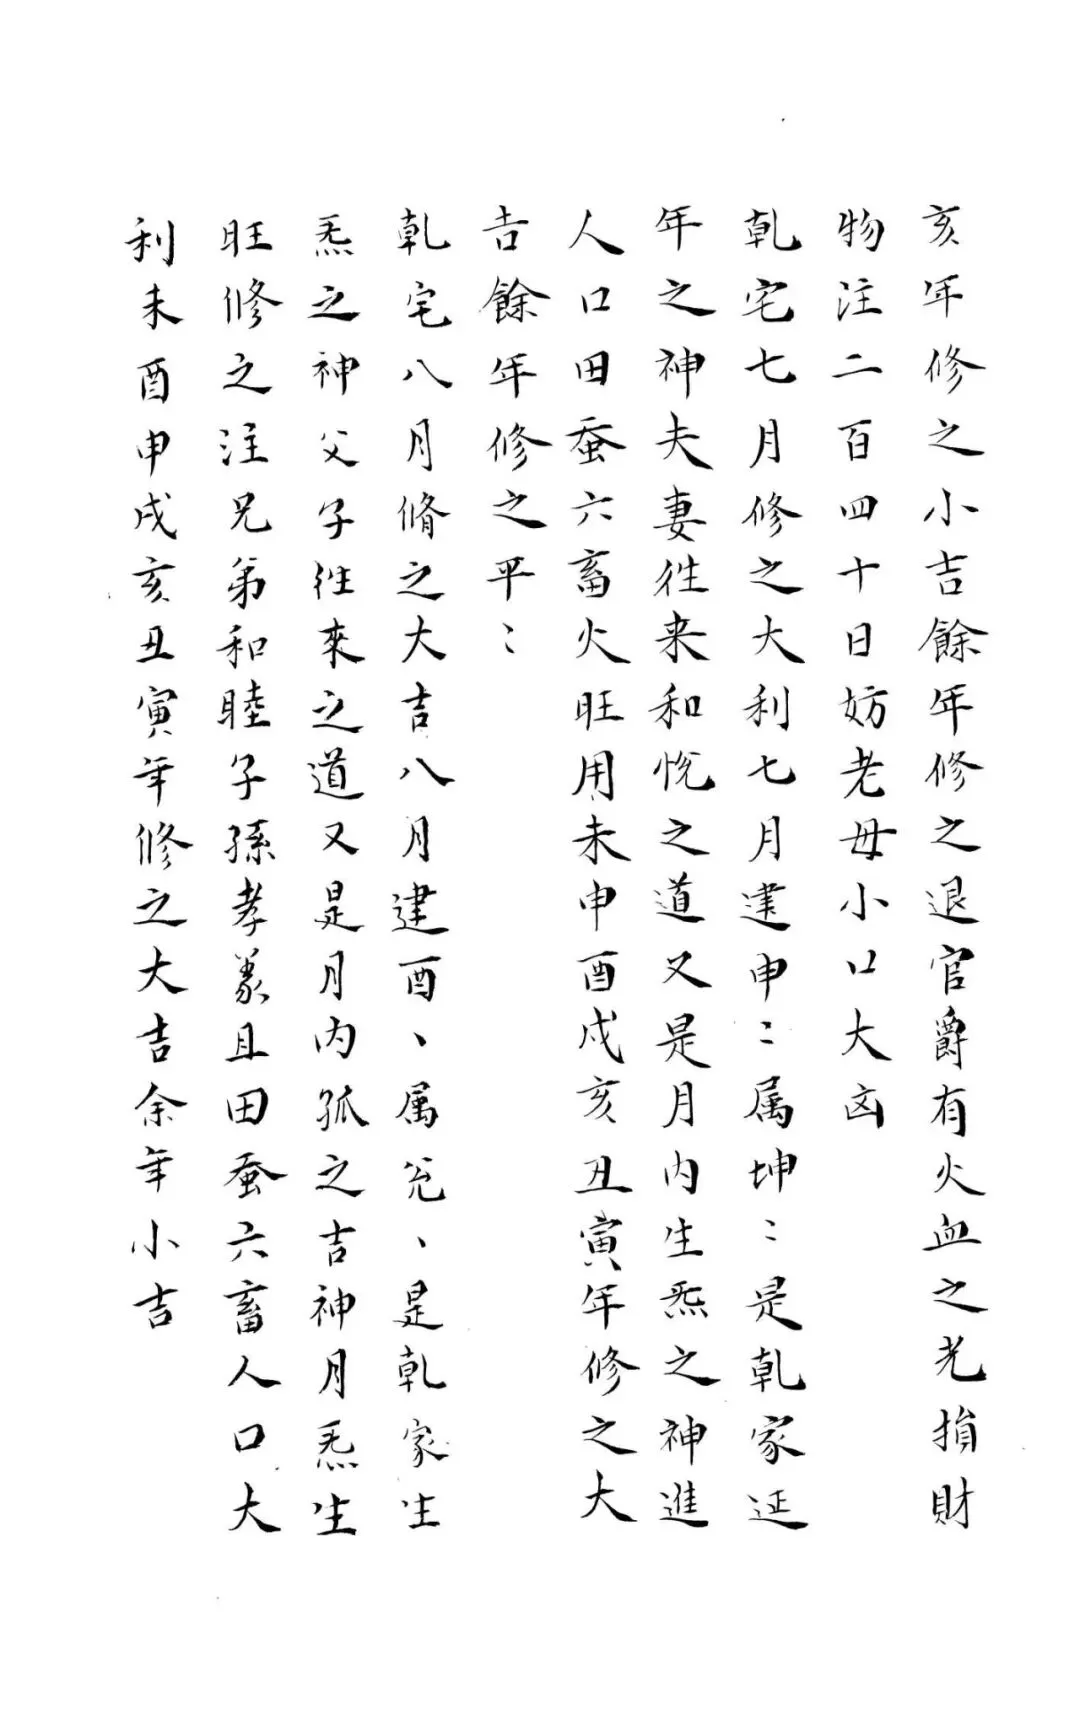 亥年修之小吉餘年修之退官爵有火血之光損財
物注二百四十日妨老母小口大凶
乹宅七月修之大利七月建申〻属坤〻是乹家延
年之神夫妻徃来和悦之道又是月内生炁之神進
人口田蚕六畜火旺用未申酉戌亥丑寅年修之大
吉餘年修之平〻
乹宅八月脩之大吉八月建酉、属兊、是乹家生
炁之神父子徃來之道又是月内孤之吉神月炁生
旺修之注兄弟和睦子孫孝義且田蚕六畜人口大
利未酉申戌亥丑寅年修之大吉余年小吉